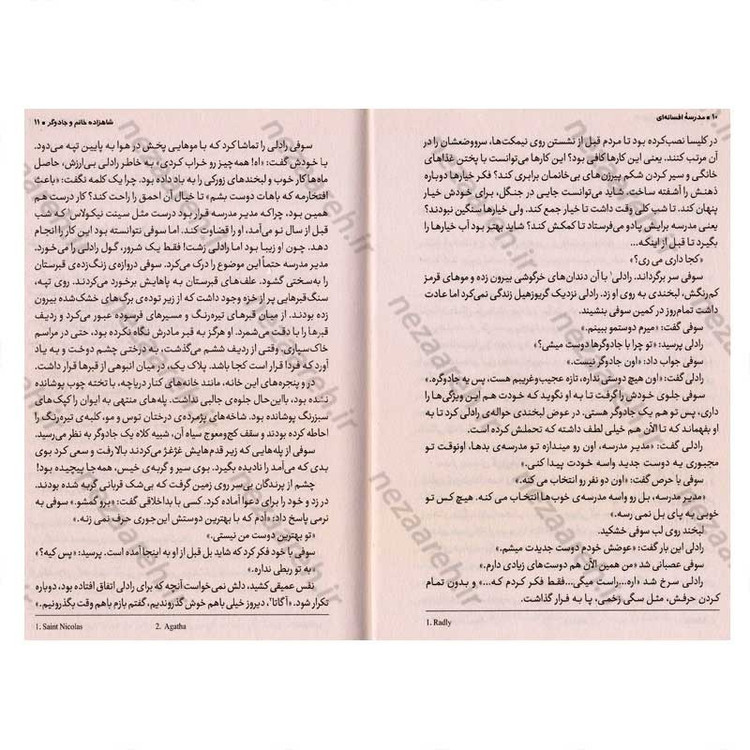 ۱۰ ■ مدرسهٔ افسانه‌ای
در کلیسا نصب‌کرده بود تا مردم قبل از نشستن روی نیمکت‌ها، سرووضعشان را
آن مرتب کنند. یعنی این کارها کافی بود؟ این کارها می‌توانست با پختن غذاهای
خانگی و سیر کردن شکم پیرزن‌های بی‌خانمان برابری کند؟ فکر خیارها دوباره
ذهنش را آشفته ساخت. شاید می‌توانست جایی در جنگل، برای خودش خیار
پنهان کند. تا شب کلی وقت داشت تا خیار جمع کند. ولی خیارها سنگین نبودند؟
یعنی مدرسه برایش پادو می‌فرستاد تا کمکش کند؟ شاید بهتر بود آب خیارها را
بگیرد تا قبل از اینکه...
«کجا داری می ری؟»
سوفی سر برگرداند. رادلی۱ با آن دندان‌های خرگوشی بیرون زده و موهای قرمز
کم‌رنگش، لبخندی به روی او زد. رادلی نزدیک گریوزهیل زندگی نمی‌کرد اما عادت
داشت تمام‌روز در کمین سوفی بنشیند.
سوفی گفت: «میرم دوستمو ببینم.»
رادلی پرسید: «تو چرا با جادوگرها دوست میشی؟»
سوفی جواب داد: «اون جادوگر نیست.»
رادلی گفت: «اون هیچ دوستی نداره، تازه عجیب‌وغریبم هست، پس یه جادوگره.»
سوفی جلوی خودش را گرفت تا به او نگوید که خودت هم این ویژگی‌ها را
داری، پس تو هم یک جادوگر هستی. در عوض لبخندی حواله‌ی رادلی کرد تا به
او بفهماند که تا الآن هم خیلی لطف داشته که تحملش کرده است.
رادلی گفت: «مدیر مدرسه، اون رو میندازه تو مدرسه‌ی بدها. اونوقت تو
مجبوری یه دوست جدید واسه خودت پیدا کنی.»
سوفی با حرص گفت: «اون دو نفر رو انتخاب می کنه.»
«مدیر مدرسه، بل رو واسه مدرسه‌ی خوب‌ها انتخاب می کنه. هیچ کس تو
خوبی به پای بل نمی رسه.»
لبخند روی لب سوفی خشکید.
رادلی این بار گفت: «عوضش خودم دوست جدیدت میشم.»
سوفی عصبانی شد «من همین الآن هم دوست‌های زیادی دارم.»
رادلی سرخ شد «اره...راست میگی...فقط فکر کردم که...» و بدون تمام
کردن حرفش، مثل سگی زخمی، پا به فرار گذاشت.
1. Radly
شاهزاده خانم و جادوگر ■ ۱۱
سوفی رادلی را تماشا کرد که با موهایی پخش در هوا به پایین تپه می‌دود.
با خودش گفت: «اه! همه‌چیز رو خراب کردی» به خاطر رادلی بی‌ارزش، حاصل
ماه‌ها کار خوب و لبخندهای زورکی را به باد داده بود. چرا یک کلمه نگفت: «باعث
افتخارمه که باهات دوست بشم» تا خیال آن احمق را راحت کند؟ کار درست هم
همین بود، چراکه مدیر مدرسه قرار بود درست مثل سینت نیکولاس۱ که شب
قبل از سال نو می‌آمد، او را قضاوت کند. اما سوفی نتوانسته بود این کار را انجام
دهد. چون او زیبا بود اما رادلی زشت! فقط یک شرور، گول رادلی را می‌خورد.
مدیر مدرسه حتماً این موضوع را درک می‌کرد. سوفی دروازه‌ی زنگ‌زده‌ی قبرستان
را به‌سختی گشود. علف‌های قبرستان به پاهایش برخورد می‌کردند. روی تپه،
سنگ‌قبرهایی پر از خزه وجود داشت که از زیر توده‌ی برگ‌های خشک‌شده بیرون
زده بودند. از میان قبرهای تیره‌رنگ و مسیرهای فرسوده عبور می‌کرد و ردیف
قبرها را با دقت می‌شمرد. او هرگز به قبر مادرش نگاه نکرده بود، حتی در مراسم
خاک‌سپاری. وقتی از ردیف ششم می‌گذشت، به درختی چشم دوخت و به یاد
آورد که فردا قرار است کجا باشد. پلاک یک، در میان انبوهی از قبرها قرار داشت.
در و پنجره‌های این خانه، مانند خانه‌های کنار دریاچه، با تخته چوب پوشانده
نشده بود، بااین‌حال جلوه‌ی جالبی نداشت. پله‌های منتهی به ایوان را کپک‌های
سبزرنگ پوشانده بود. شاخه‌های پژمرده‌ی درختان توس و مو، کلبه‌ی تیره‌رنگ را
احاطه کرده بودند و سقف کج‌ومعوج سیاه آن، شبیه کلاه یک جادوگر به نظر می‌رسید.
سوفی از پله‌هایی که زیر قدم‌هایش غژغژ می‌کردند بالا رفت و سعی کرد بوی
بدی که می‌آمد را نادیده بگیرد. بوی سیر و گربه‌ی خیس، همه‌جا پیچیده بود!
چشم از پرندگان بی‌سر روی زمین گرفت که بی‌شک قربانی گربه شده بودند.
در زد و خود را برای دعوا آماده کرد. کسی با بداخلاقی گفت: «برو گمشو.» سوفی به
نرمی پاسخ داد: «آدم که با بهترین دوستش این‌جوری حرف نمی زنه.»
«تو بهترین دوست من نیستی.»
سوفی با خود فکر کرد که شاید بل قبل از او به اینجا آمده است. پرسید: «پس کیه؟»
«به تو ربطی نداره.»
نفس عمیقی کشید، دلش نمی‌خواست آنچه که برای رادلی اتفاق افتاده بود، دوباره
تکرار شود. «آگاتا۲، دیروز خیلی باهم خوش گذروندیم، گفتم بازم باهم وقت بگذرونیم.»
1. Saint Nicolas 2. Agatha
nezaareh.ir